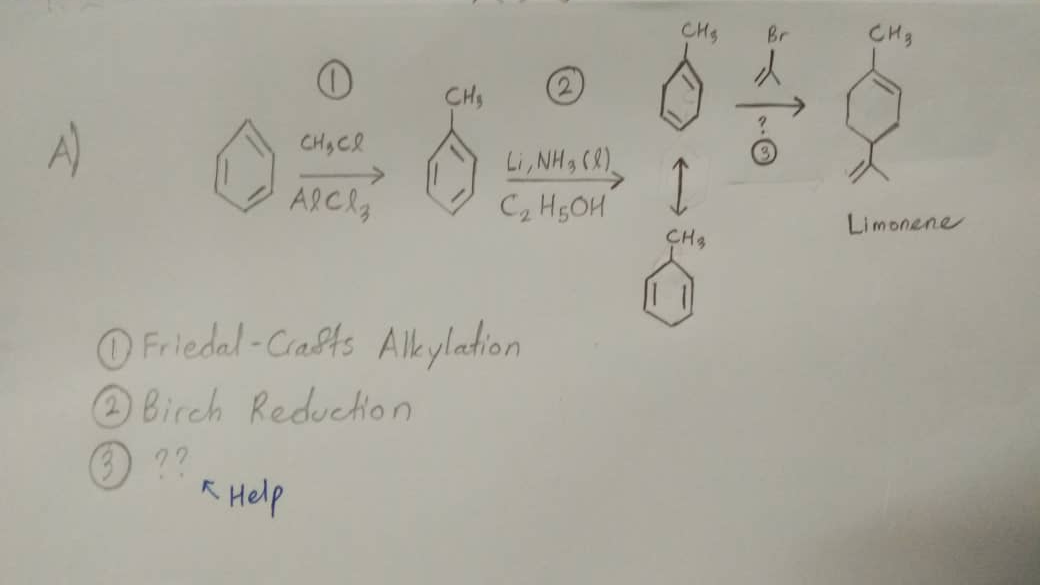 A)
①
CH₃Cl
AlCl₃
CH₃
②
Li, NH₃(l)
C₂H₅OH
CH₃
CH₃
Br
?
③
CH₃
Limonene
① Friedal-Crafts Alkylation
② Birch Reduction
③ ??
Help